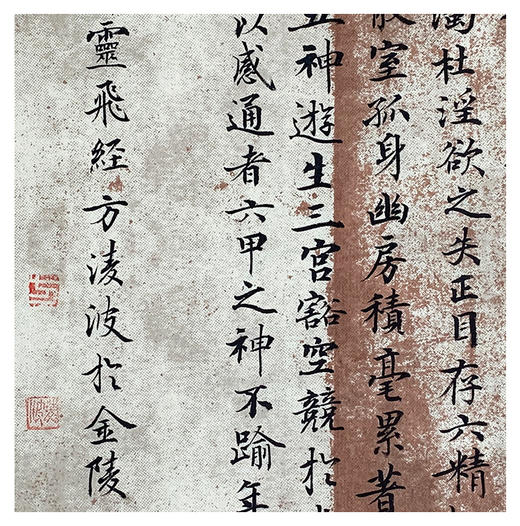 濁杜淫欲之失正目存六精
散室孤身幽房積毫累著
五神遊生三宮豁空競於
以感通者六甲之神不踰年
靈飛經方淩波於金陵